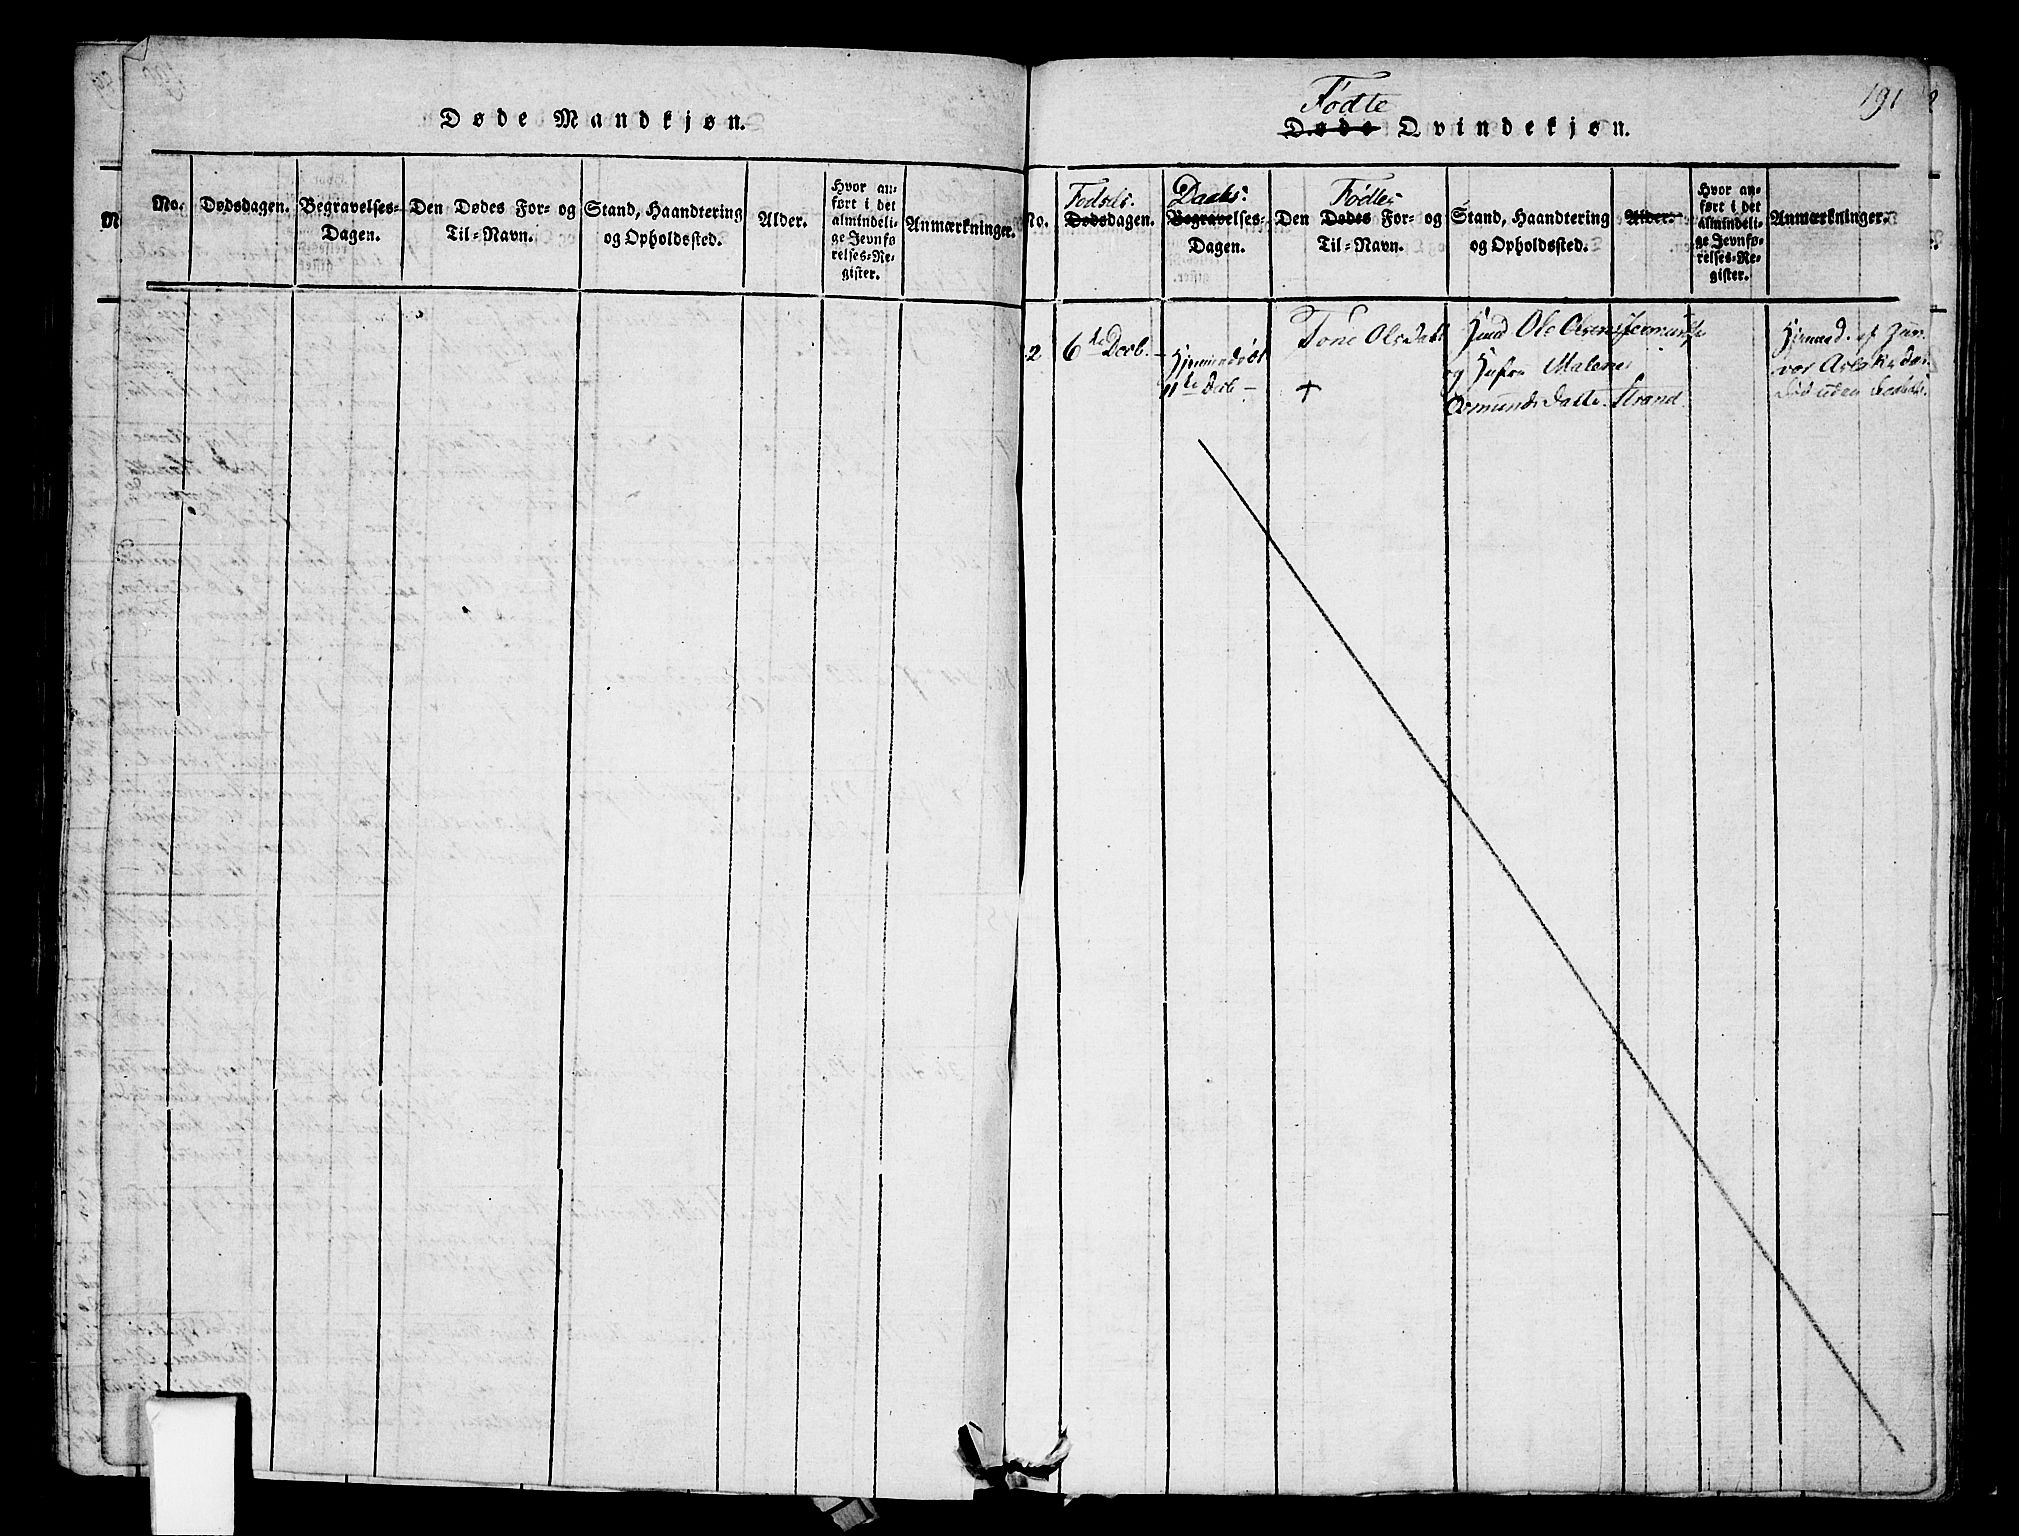 Døde Mandkjøn.
No.
Dødsdagen.
Begravelses-
Dagen.
Den Dødes For- og
Til-Navn.
Stand, Haandtering
og Opholdssted.
Alder.
Hvor an-
ført i det
almindeli-
ge Jevnfø-
relses-Re-
gister.
Anmærkninger.
191
Fødte
Døde Qvindekjøn.
No.
Fødsels-
Dødsdagen.
Daabs:
Begravelses-
Dagen.
Fødtes
Den Dødes For- og
Til-Navn.
Stand, Haandtering
og Opholdssted.
Alder.
Hvor an-
ført i det
almindeli-
ge Jevnfø-
relses-Re-
gister.
Anmærkninger.
2
6te Decb.
Hjemmedøbt
11te Decb
Tone Olsdatt
+
Huusd Ole Olsen
og Hustru Malene
Osmundsdatter Strand
Hjemmed. af
død uden